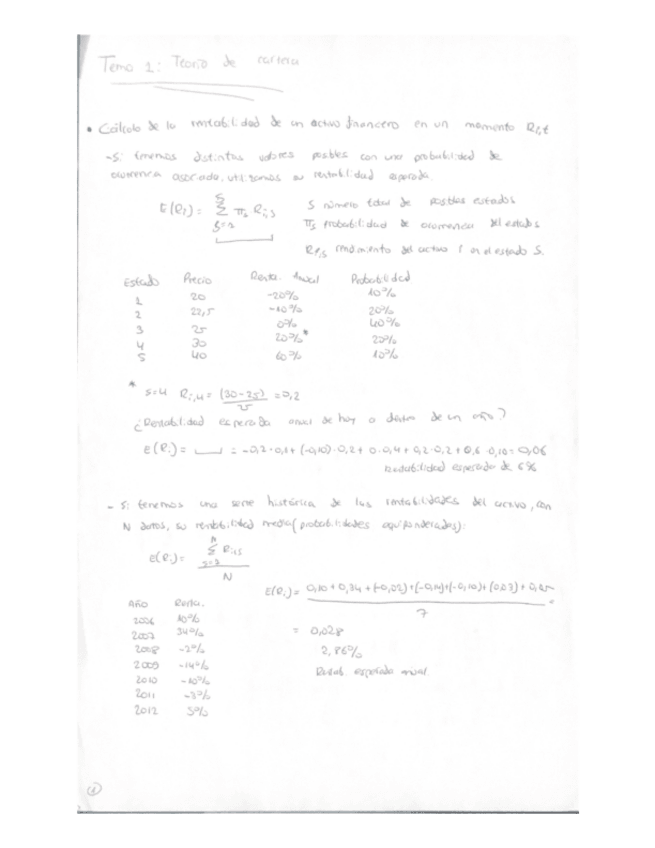 Tema 1: Teoría de cartera
• Cálculo de la rentabilidad de un activo financiero en un momento Ri,t
- Si tenemos distintos valores posibles con una probabilidad de
ocurrencia asociada, utilizamos su rentabilidad esperada.
E(Ri) = Σ πs Ri,s S número total de posibles estados
s=1 πs probabilidad de ocurrencia del estado s
Ri,s rendimiento del activo i en el estado S.
Estado Precio Renta. Anual Probabilidad
1 20 -20% 10%
2 22,5 -10% 20%
3 25 0% 40%
4 30 20%* 20%
5 40 60% 10%
* s=4 Ri,4 = (30-25) / 25 = 0,2
¿Rentabilidad esperada anual de hoy a dentro de un año?
E(Ri) = = -0,2·0,1+(-0,10)·0,2+0·0,4+0,2·0,2+0,6·0,10=0,06
Rentabilidad esperada de 6%
- Si tenemos una serie histórica de las rentabilidades del activo, con
N datos, su rentabilidad media (probabilidades equiponderadas):
E(Ri) = Σ Ri,s / N
E(Ri) = 0,10+0,34+(-0,02)+(-0,14)+(-0,10)+(0,03)+0,05 / 7 =
= 0,028
2,86%
Rentab. esperada anual
Año Renta.
2006 10%
2007 34%
2008 -2%
2009 -14%
2010 -10%
2011 -3%
2012 5%
1